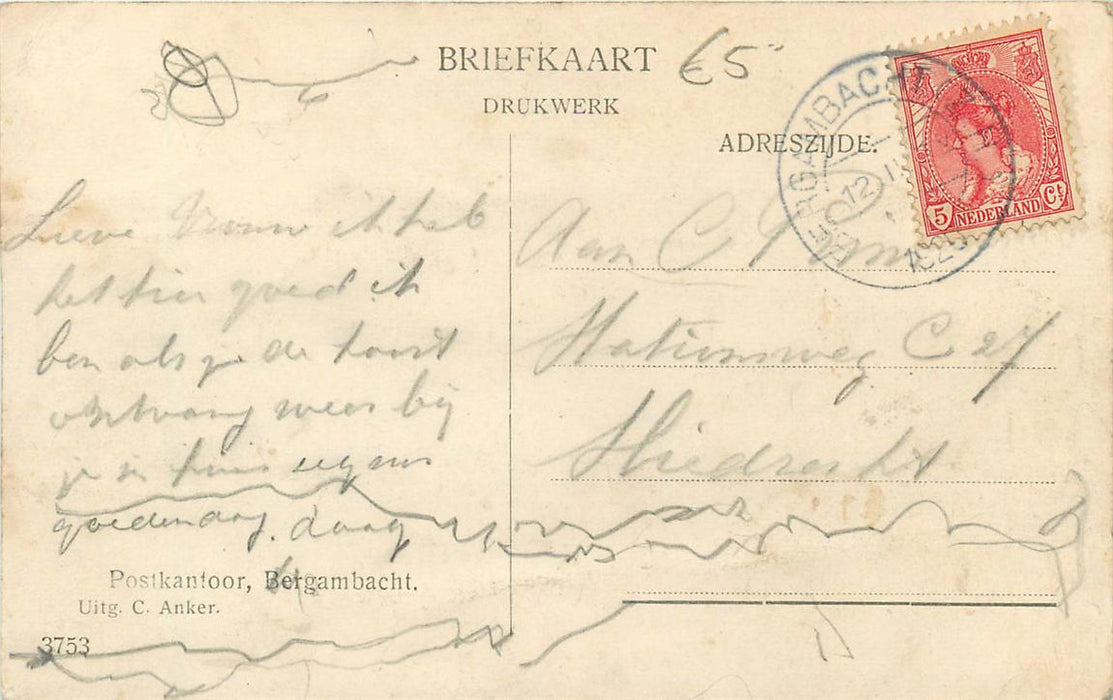 BRIEFKAART €5
DRUKWERK
ADRESZIJDE.
BERGAMBACHT
12
5 NEDERLAND Ct
Lieve Vrouw ik heb
het hier goed ik
ben als je de kaart
ontvang weer bij
je in huis
goedendag. daag
Aan C
Stationsweg C 27
Sliedrecht
Postkantoor, Bergambacht.
Uitg. C. Anker.
3753